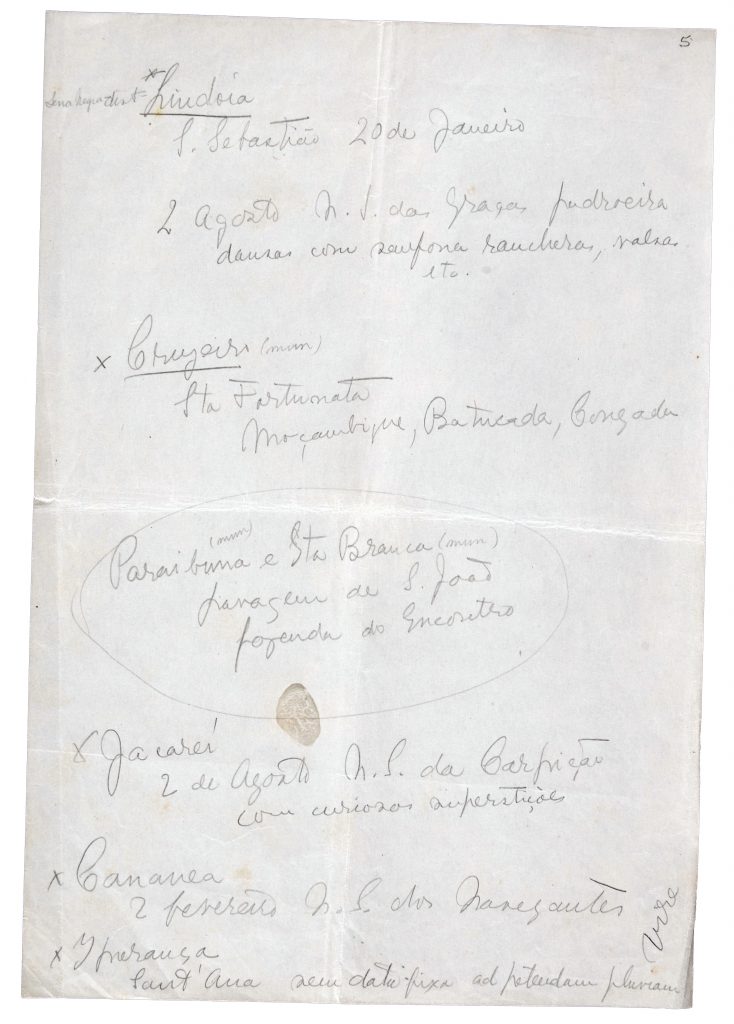 5
* Lindoia
S. Sebastião 20 de Janeiro
2 Agosto N. S. das Graças padroeira
dansas com sanfona rancheras, valsas
etc.
x Cruzeiro (mun)
Sta Fortunata
Moçambique, Batucada, Congada
(mun)
Paraibuna e Sta Branca (mun)
paragem de S. João
fazenda do
x Jacareí
2 de Agosto N. S. da Carpição
com curiosas superstições
x Cananea
2 fevereiro N. S. dos Navegantes
x Yporanga
Sant'Ana sem data fixa ad petendam pluviam
Vire